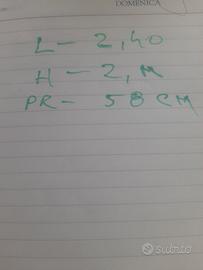 DOMENICA
L - 2,40
H - 2, M
PR - 58 CM
subito